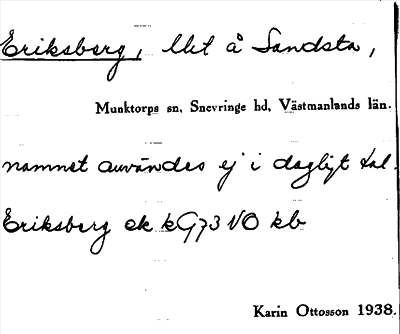 Eriksberg, llet å Sandsta,
Munktorps sn, Snevringe hd, Västmanlands län.
namnet användes ej i dagligt tal.
Eriksberg ek kG73 VO kb
Karin Ottosson 1938.